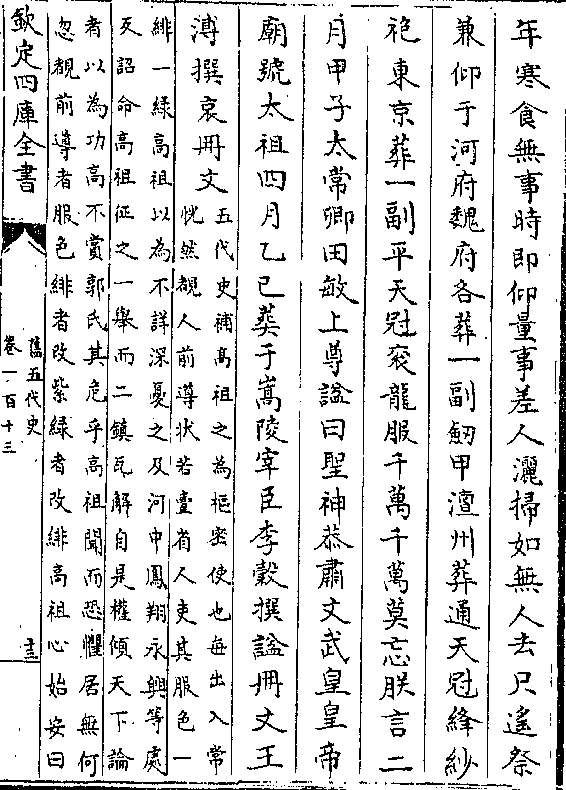 年寒食無事時即仰量事差人灑掃如無人去只遙祭
兼仰于河府魏府各葬一副劔甲澶州葬通天冠絳紗
袍東京葬一副平天冠衮龍服千萬千萬莫忘朕言二
月甲子太常卿田敏上尊諡曰聖神恭肅文武皇皇帝
廟號太祖四月乙巳葬于嵩陵宰臣李榖撰諡冊文王
溥撰哀冊文
五代史補高祖之為樞密使也每出入常
恍然覩人前導狀若臺省人吏其服色一
緋一綠高祖以為不詳深憂之及河中鳳翔永興等處
反詔命高祖征之一舉而二鎮瓦解自是權傾天下論
者以為功高不賞郭氏其危乎高祖聞而恐懼居無何
忽覩前導者服色緋者改紫綠者改緋高祖心始安曰
欽定四庫全書
舊五代史
卷一百十三